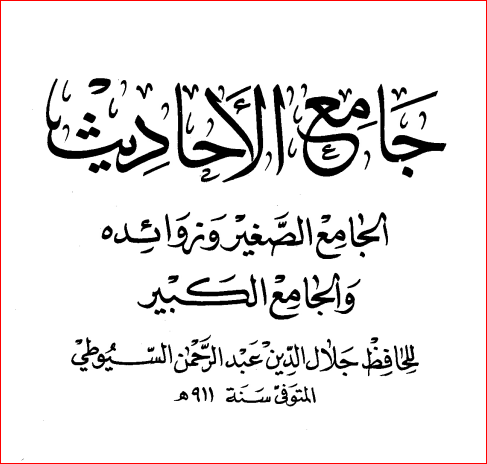 جَامِعُ الأَحَادِيْث
الجَامِعُ الصَّغِيْر وَزَوَائِدِه
وَالجَامِعُ الكَبِيْر
لِلْحَافِظْ جَلَال الدِّيْن عَبْد الرَّحْمٰن السّيُوطِيْ
المتَوَفّى سَنَة ٩١١ هـ